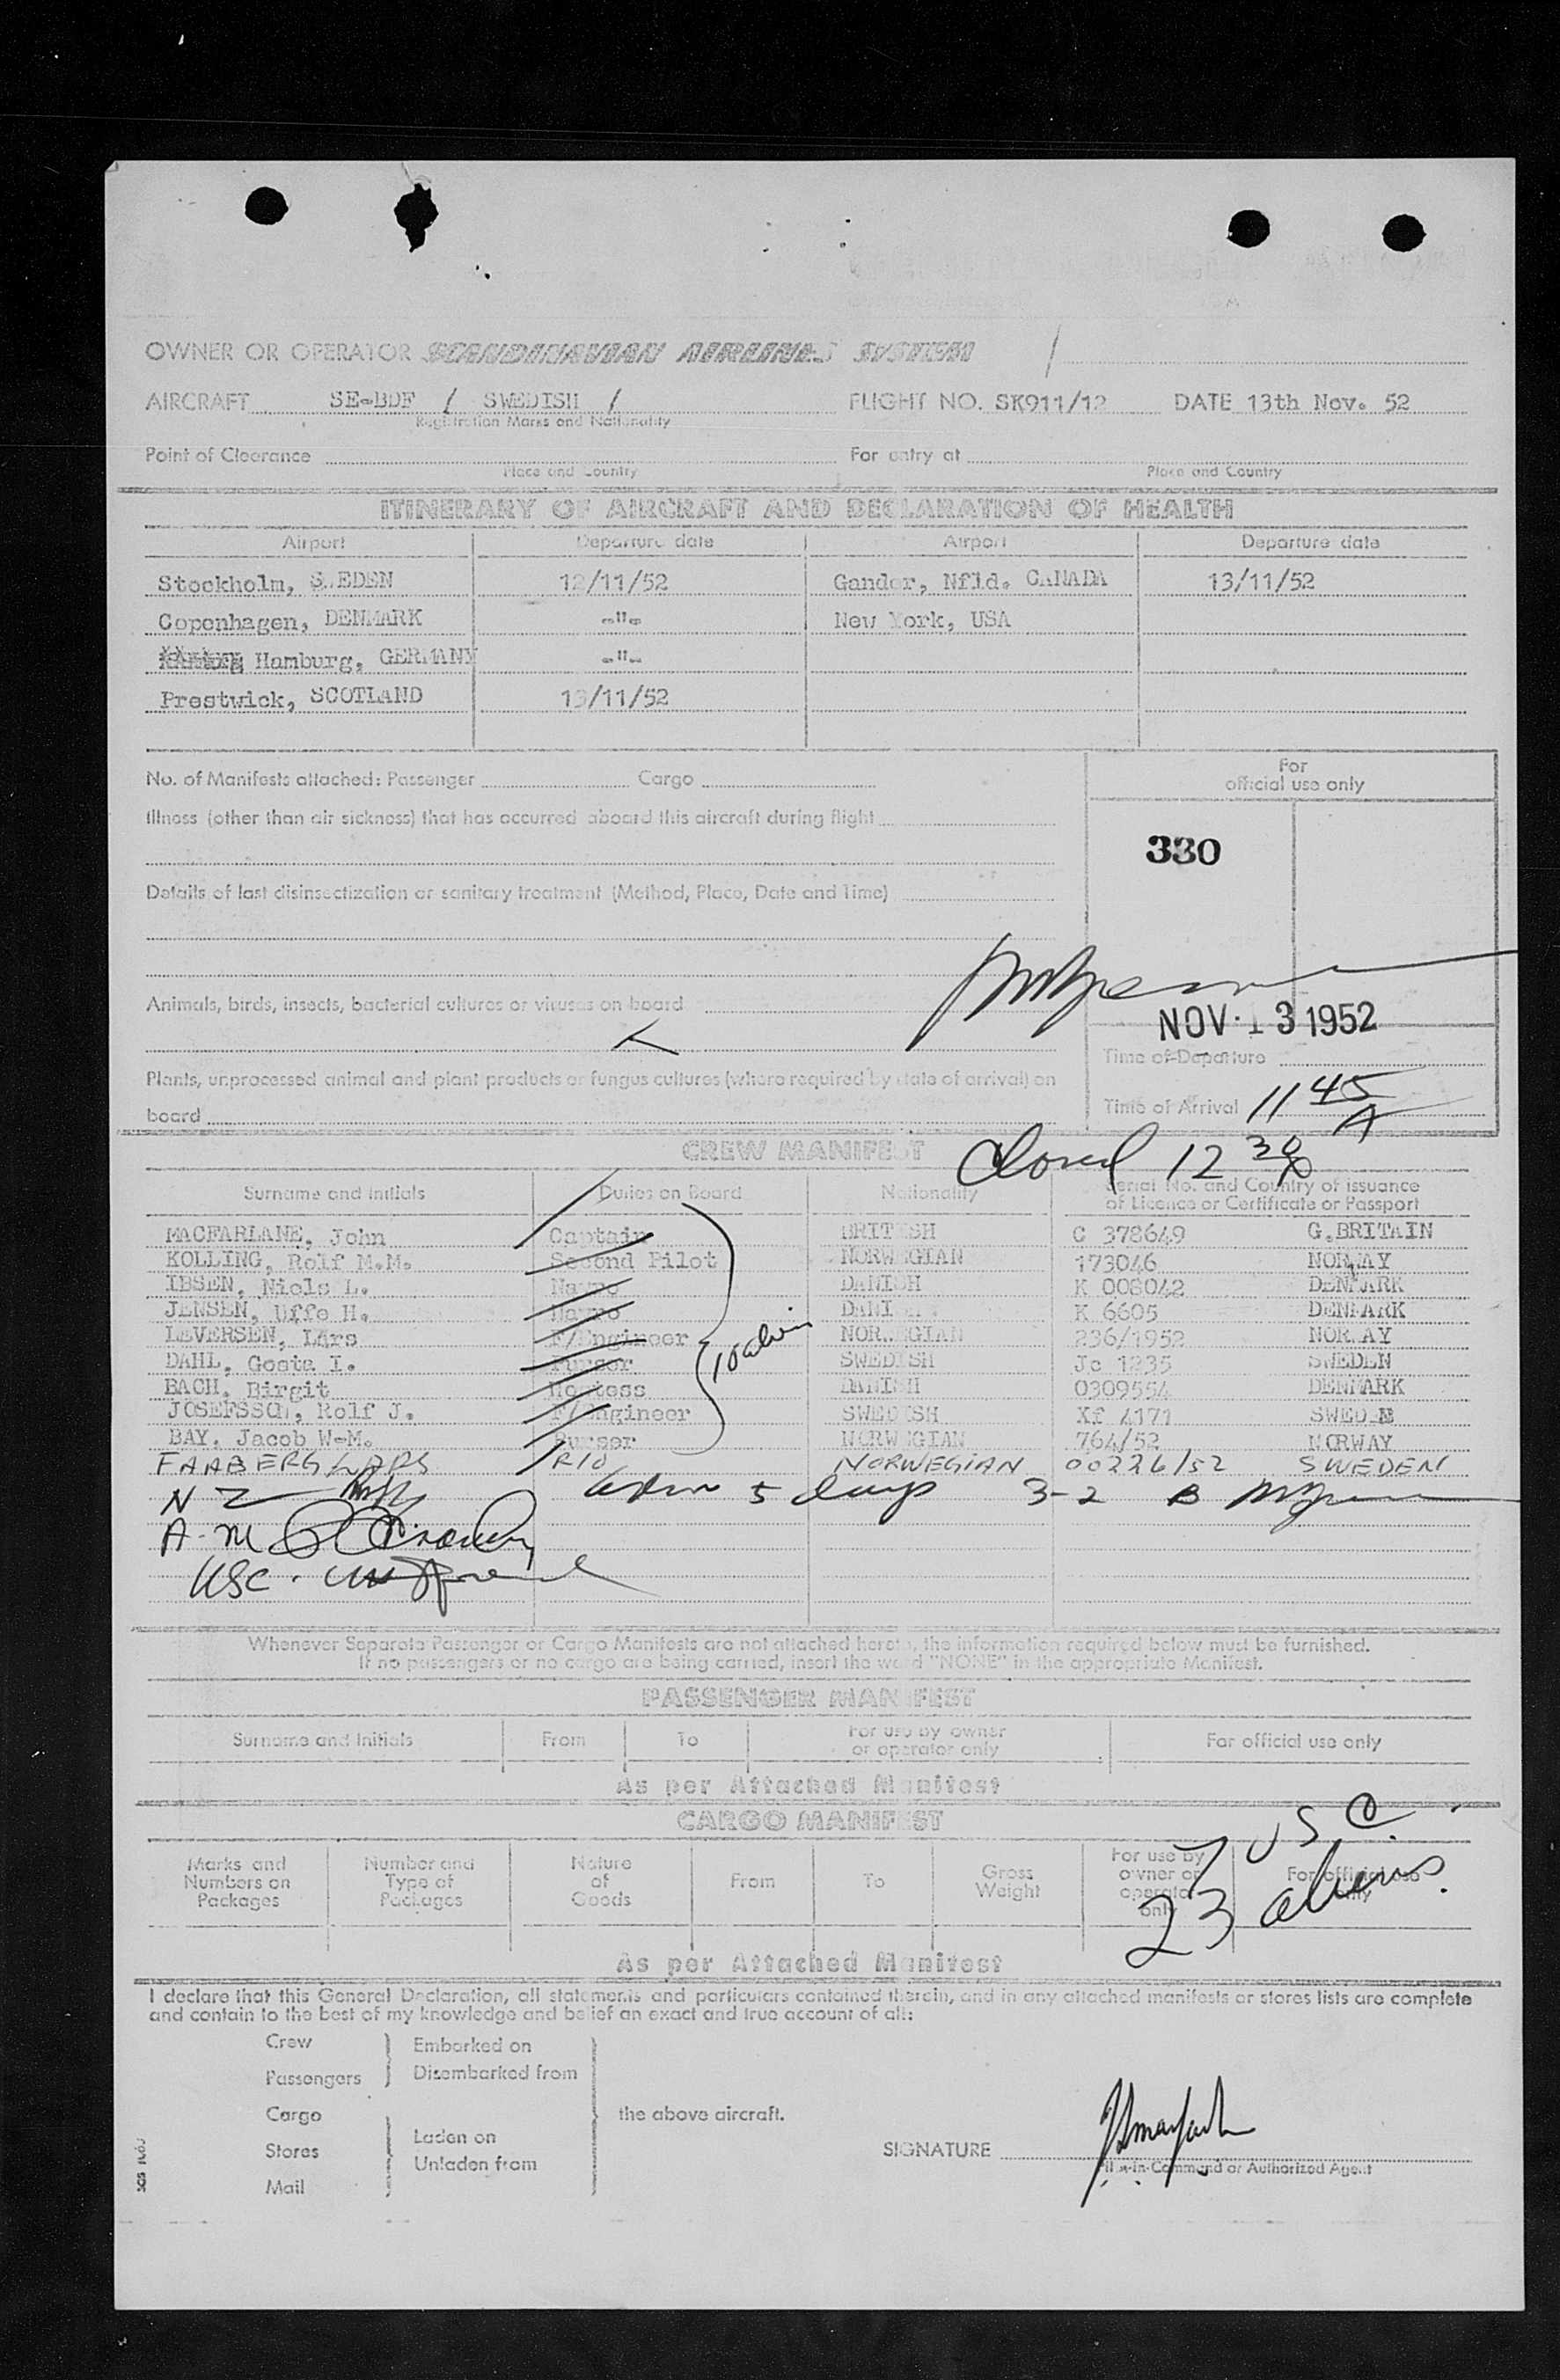 OWNER OR OPERATOR SCANDINAVIAN AIRLINES SYSTEM /
AIRCRAFT SE-BDF / SWEDISH / FLIGHT NO. SK911/12 DATE 13th Nov. 52
Registration Marks and Nationality
Point of Clearance For entry at
Place and Country Place and Country
ITINERARY OF AIRCRAFT AND DECLARATION OF HEALTH
Airport Departure date Airport Departure date
Stockholm, SWEDEN 12/11/52 Gander, Nfld. CANADA 13/11/52
Copenhagen, DENMARK -"- New York, USA
Hamburg, GERMANY -"-
Prestwick, SCOTLAND 13/11/52
No. of Manifests attached: Passenger Cargo
For
official use only
Illness (other than air sickness) that has occurred aboard this aircraft during flight
330
Details of last disinsectization or sanitary treatment (Method, Place, Date and Time)
Animals, birds, insects, bacterial cultures or viruses on board
NOV. 13 1952
Time of Departure
Plants, unprocessed animal and plant products or fungus cultures (where required by state of arrival) on
board
Time of Arrival 11 45 A
CREW MANIFEST Closed 12 30
Surname and Initials Duties on Board Nationality Serial No. and Country of issuance
of Licence or Certificate or Passport
MACFARLANE, John Captain BRITISH C 378649 G.BRITAIN
KOLLING, Rolf M.M. Second Pilot NORWEGIAN 173046 NORWAY
IBSEN, Niels L. Navro DANISH K 008042 DENMARK
JENSEN, Uffe H. Navro DANISH K 6605 DENMARK
LEVERSEN, Lars F/Engineer NORWEGIAN 236/1952 NORWAY
DAHL, Gosta I. Purser SWEDISH Jc 1235 SWEDEN
BACH, Birgit Hostess DANISH 0309554 DENMARK
JOSEFSSON, Rolf J. F/Engineer SWEDISH Xf 4171 SWEDEN
BAY, Jacob W-M. Purser NORWEGIAN 764/52 NORWAY
FAABERG LARS R/O NORWEGIAN 00226/52 SWEDEN
10 aliens
5 days 3-2 B
A.M
USC.
Whenever Separate Passenger or Cargo Manifests are not attached hereto, the information required below must be furnished.
If no passengers or no cargo are being carried, insert the word "NONE" in the appropriate Manifest.
PASSENGER MANIFEST
Surname and Initials From To For use by owner
or operator only For official use only
As per Attached Manifest
CARGO MANIFEST
7 USC.
23 aliens.
Marks and
Numbers on
Packages
Number and
Type of
Packages
Nature
of
Goods
From To Gross
Weight
For use by
owner or
operator
only
For official use
only
As per Attached Manifest
I declare that this General Declaration, all statements and particulars contained therein, and in any attached manifests or stores lists are complete
and contain to the best of my knowledge and belief an exact and true account of all:
Crew Embarked on
Passengers Disembarked from
Cargo the above aircraft.
Stores Laden on
Unladen from
Mail
SIGNATURE
Pilot-in-Command or Authorized Agent